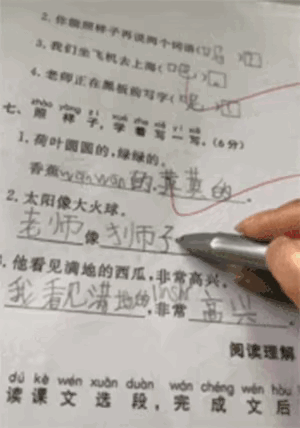 2. 你能照样子再说两个词语(口马)口
3. 我们坐飞机去上海(吧)
4. 老师正在黑板前写字(呢)
zhào yàng zi xué zhe xiě yi xiě
七、照样子,学着写一写。(6分)
1. 荷叶圆圆的,绿绿的。
香蕉wānwān的,黄黄的。
2. 太阳像大火球。
老师像
3. 他看见满地的西瓜,非常高兴。
我看见满地的,非常高兴。
阅读理解
dú kè wén xuǎn duàn wán chéng wén hòu
读课文选段,完成文后